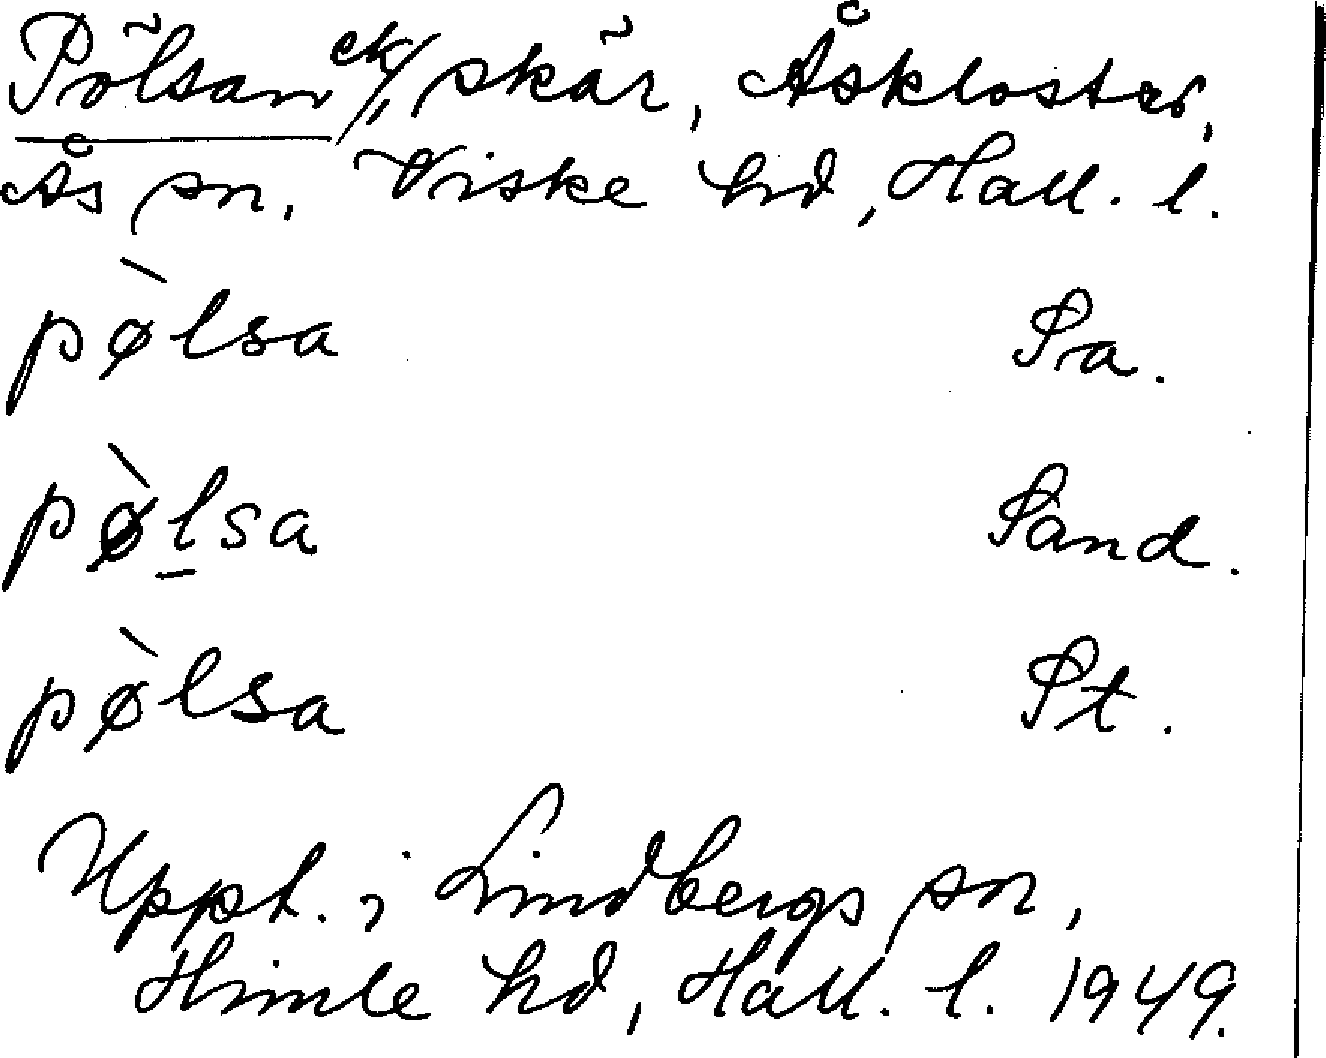 Pölsan ck/, skär, Åskloster,
Ås sn. Viske hd, Hall. l.
pø̀lsa Sa.
pø̀lsa Sand.
pø̀lsa St.
Uppt. i Lindbergs sn,
Himle hd, Hall. l. 1949.